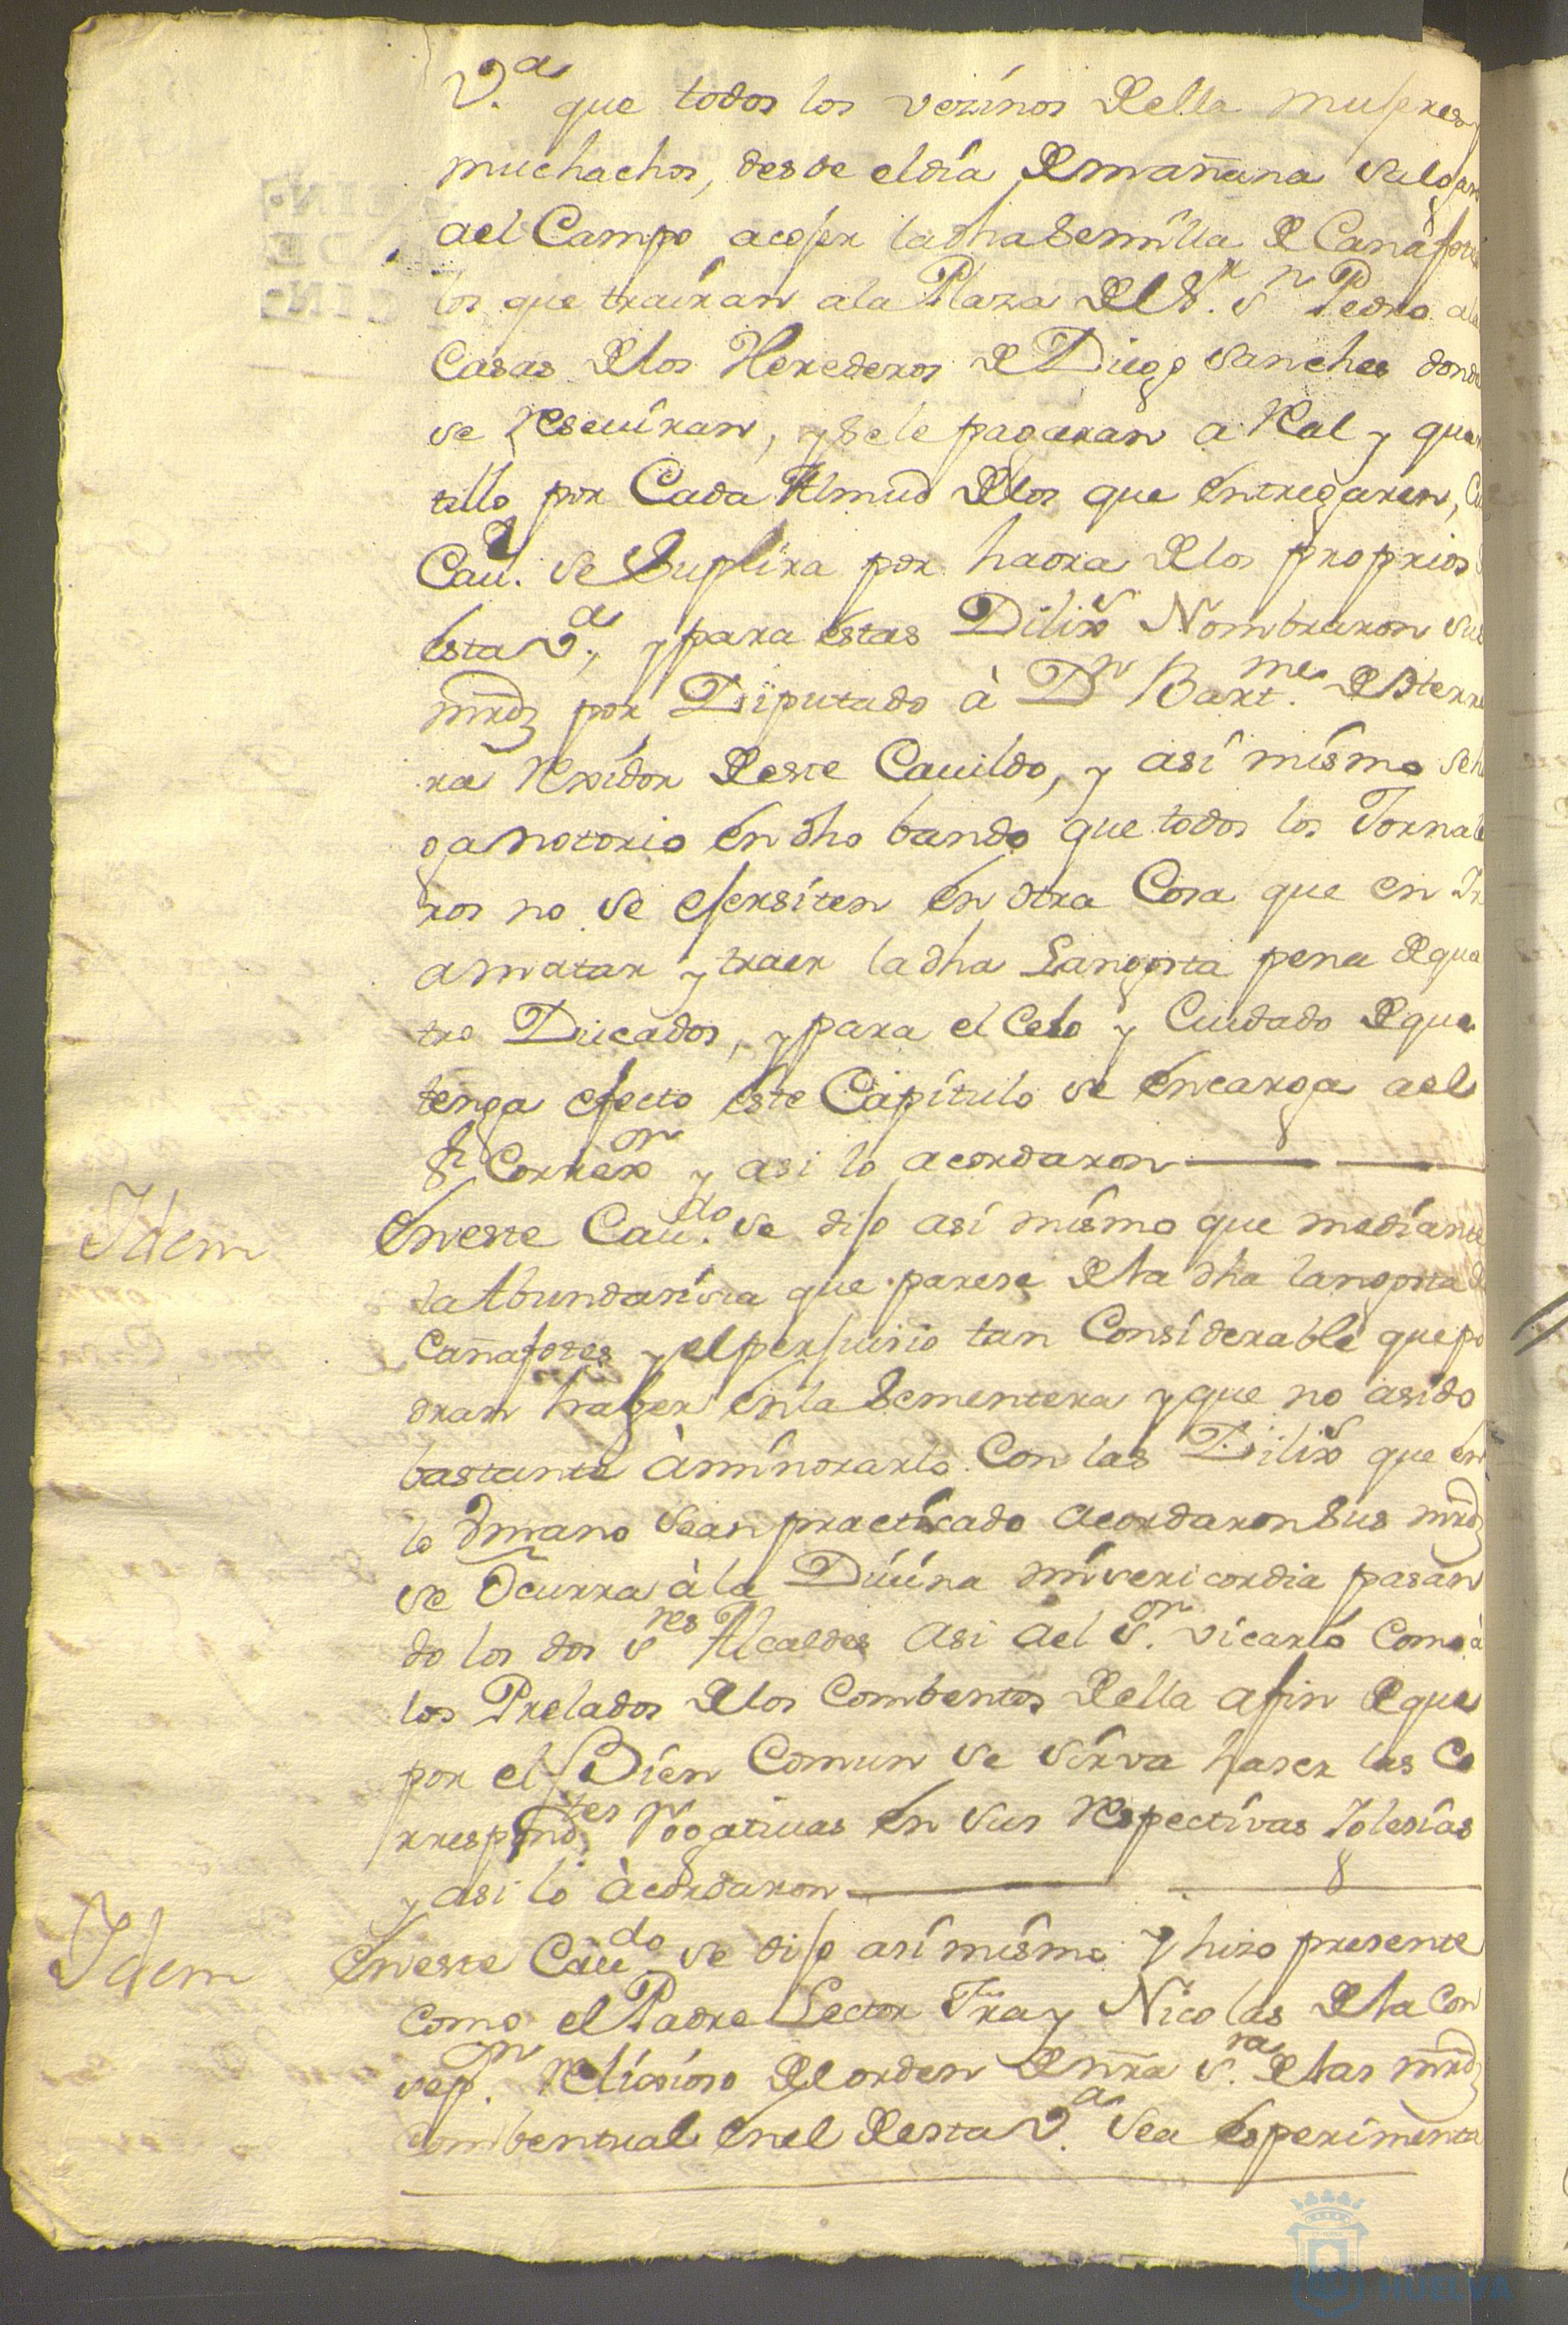 V.ª que todos los vezinos Della mujeres y
muchachos, desde el dia De mañana salgan
ael Campo acojer ladha Semilla De Cañafotes
los que trairan ala Plaza Del Sr. Sn Pedro alas
Casas Delos Herederos De Diego Sanches donde
se Reseuiran, y Sele pagaran a Ral y quar
tillo por Cada Almud Delos que entregaren,
Cau.l Se Suplira por haora Delos proprios
esta V.ª, y para estas Dilixs Nombraron sus
mrds por Diputado à Dn Bart.me De Herre
ra Rexidor Deste Cauildo, y asi mismo Seh
aga notorio en dho bando que todos los Jornale
ros no se ejersiten en otra Cosa que en Ir
amatar y traer ladha Langosta pena De qua
tro Ducados, y para el Celo y Cuidado De que
tenga efecto este Capitulo se encarga ael
Sr Correxor y asi lo acordaron
Idem
En este Cau.do se dijo asi mismo que mediante
la Abundansia que parese Dela dha langosta de
Cañafotes y el perjuisio tan Considerable que po
dran haser en la Sementera y que no asido
bastante àminorarlo Con las Dilixs que en
lo Vmano sean practicado acordaron Sus mrds
se Ocurra àla Diuina misericordia pasan
do los dos Sres Alcaldes asi àel Sor. vicario Como à
los Prelados Delos Combentos Della afin De que
por el Bien Comun se sirva haser las Co
rrespondtes Rogatiuas en sus Respectivas Iglesias
y asi lo àcordaron
Idem
En este Caudo se dijo asi mismo y hizo presente
como el Padre Lector Fray Nicolas Dela Con
sepn. Relixioso Del orden De nra Sra Delas mrds
combentual en el Desta V.ª sea esperimenta
HUELVA